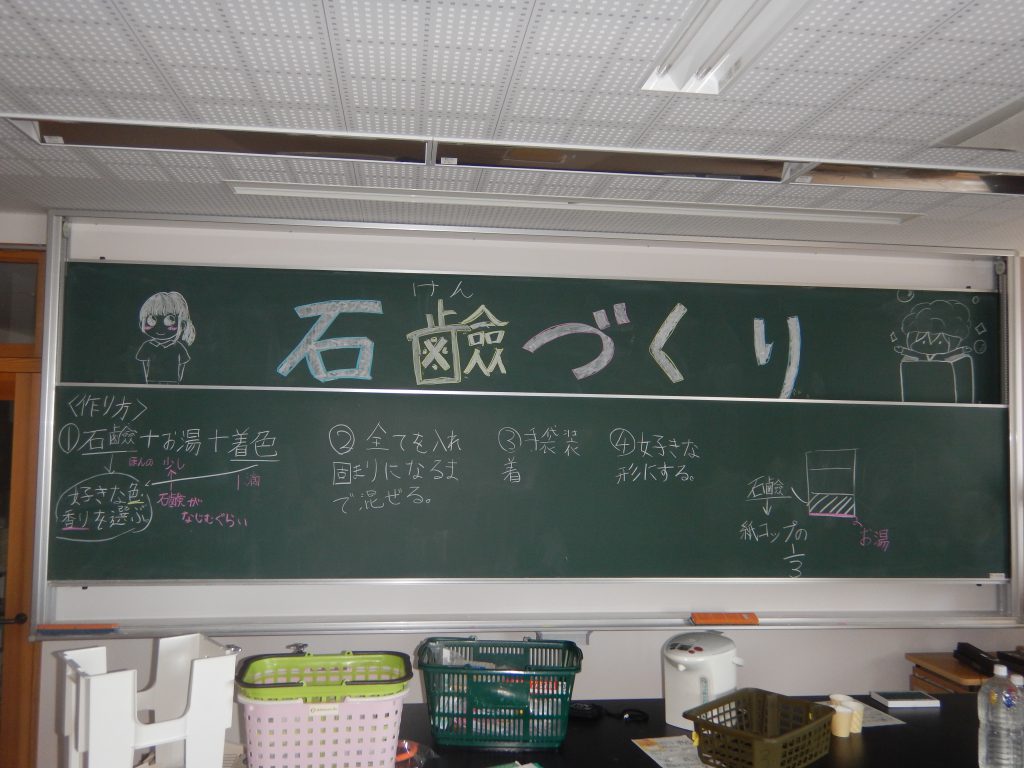 けん
石鹼づくり
〈作り方〉
①石鹼+お湯+着色
ほんの少し
1滴
好きな色
香りを選ぶ
石鹸が
なじむぐらい
② 全てを入れ
固まりになるま
で混ぜる。
③手袋装
着
④好きな
形にする。
石鹼
紙コップの
1/3
お湯